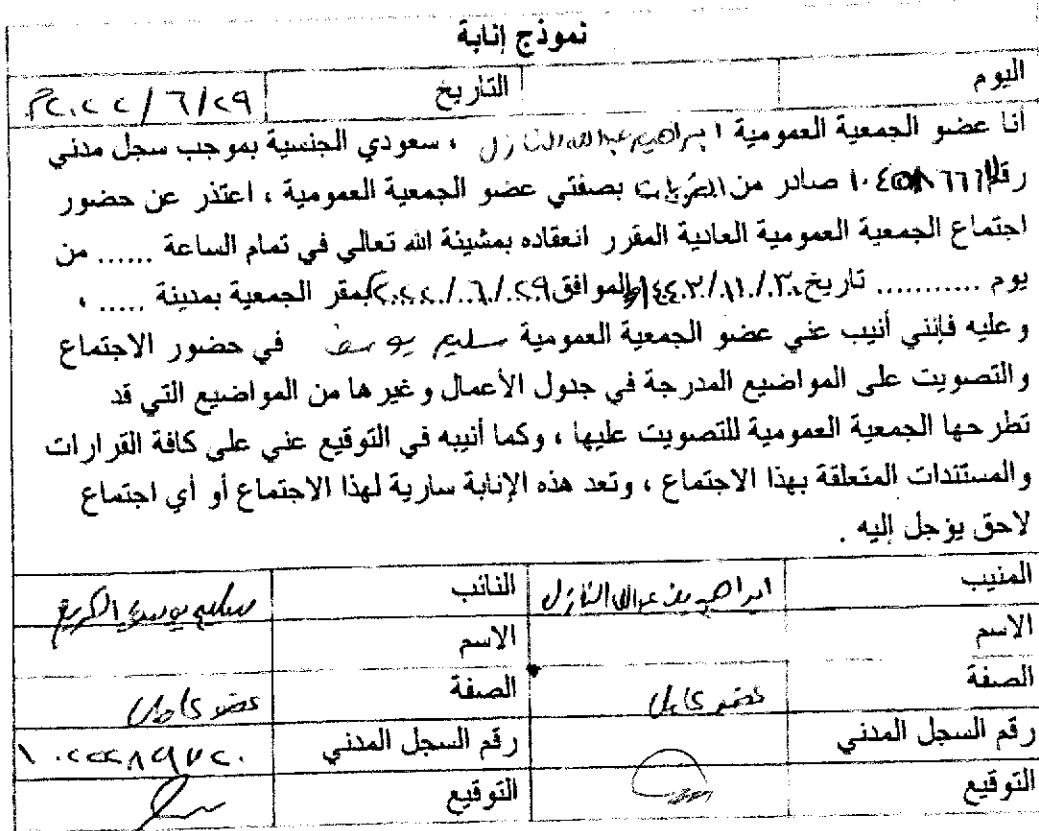 نموذج إنابة
اليوم التاريخ ٢٠٢٢/٦/٢٩م
أنا عضو الجمعية العمومية ابراهيم عبدالله النازل ، سعودي الجنسية بموجب سجل مدني
رقم صادر من القريات بصفتي عضو الجمعية العمومية ، اعتذر عن حضور
اجتماع الجمعية العمومية العادية المقرر انعقاده بمشيئة الله تعالى في تمام الساعة ...... من
يوم ........... تاريخ ١٤٤٣/١١/٣٠ الموافق ٢٠٢٢/٦/٢٩ بمقر الجمعية بمدينة ..... ،
وعليه فإنني أنيب عني عضو الجمعية العمومية سليم يوسف في حضور الاجتماع
والتصويت على المواضيع المدرجة في جدول الأعمال وغيرها من المواضيع التي قد
تطرحها الجمعية العمومية للتصويت عليها ، وكما أنيبه في التوقيع عني على كافة القرارات
والمستندات المتعلقة بهذا الاجتماع ، وتعد هذه الإنابة سارية لهذا الاجتماع أو أي اجتماع
لاحق يؤجل إليه .
المنيب ابراهيم بن عبدالله النازل النائب سليم يوسف
الاسم الاسم
الصفة عضو عامل الصفة عضو عامل
رقم السجل المدني رقم السجل المدني ١٠٢٢٢٨٩٧٢٠
التوقيع التوقيع